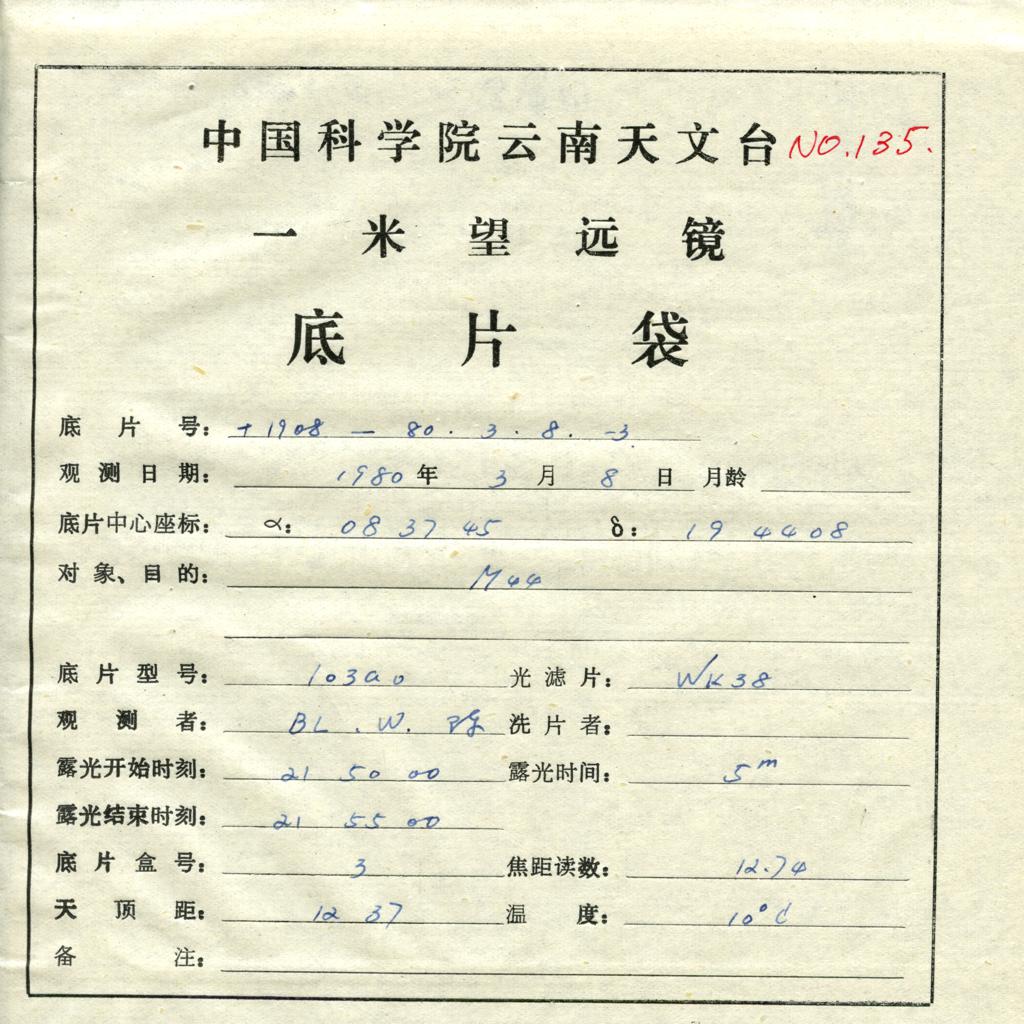 中国科学院云南天文台 NO.135.
一米望远镜
底片袋
底片号: +1908 — 80.3.8.-3
观测日期: 1980年 3月 8日 月龄
底片中心座标: α: 08 37 45 δ: 19 44 08
对象、目的: M44
底片型号: 103aO 光滤片: WK38
观测者: BL. W. 洗片者:
露光开始时刻: 21 50 00 露光时间: 5m
露光结束时刻: 21 55 00
底片盒号: 3 焦距读数: 12.74
天顶距: 12 37 温度: 10°C
备注: